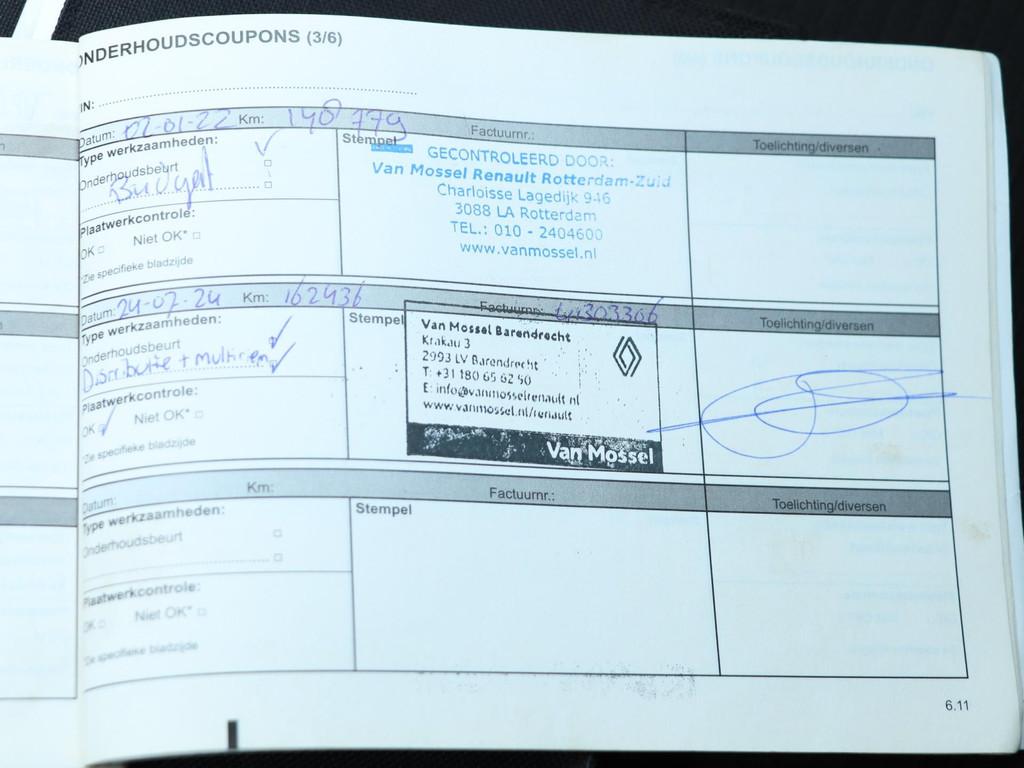 ONDERHOUDSCOUPONS (3/6)
IN:
Datum: 02-01-22 Km: 140 779 Factuurnr.:
Type werkzaamheden:
Onderhoudsbeurt
Budget
Plaatwerkcontrole:
OK Niet OK*
*Zie specifieke bladzijde
Stempel
GECONTROLEERD DOOR:
Van Mossel Renault Rotterdam-Zuid
Charloisse Lagedijk 946
3088 LA Rotterdam
TEL.: 010 - 2404600
www.vanmossel.nl
Toelichting/diversen
Datum: 24-07-24 Km: 162436 Factuurnr.:
Type werkzaamheden:
Onderhoudsbeurt
Distributie + multiriem
Plaatwerkcontrole:
OK Niet OK*
*Zie specifieke bladzijde
Stempel
Van Mossel Barendrecht
Krakau 3
2993 LV Barendrecht
T: +31 180 65 62 50
E: info@vanmosselrenault.nl
www.vanmossel.nl/renault
Van Mossel
Toelichting/diversen
Datum: Km: Factuurnr.:
Type werkzaamheden:
Onderhoudsbeurt
Plaatwerkcontrole:
OK Niet OK*
*Zie specifieke bladzijde
Stempel
Toelichting/diversen
6.11